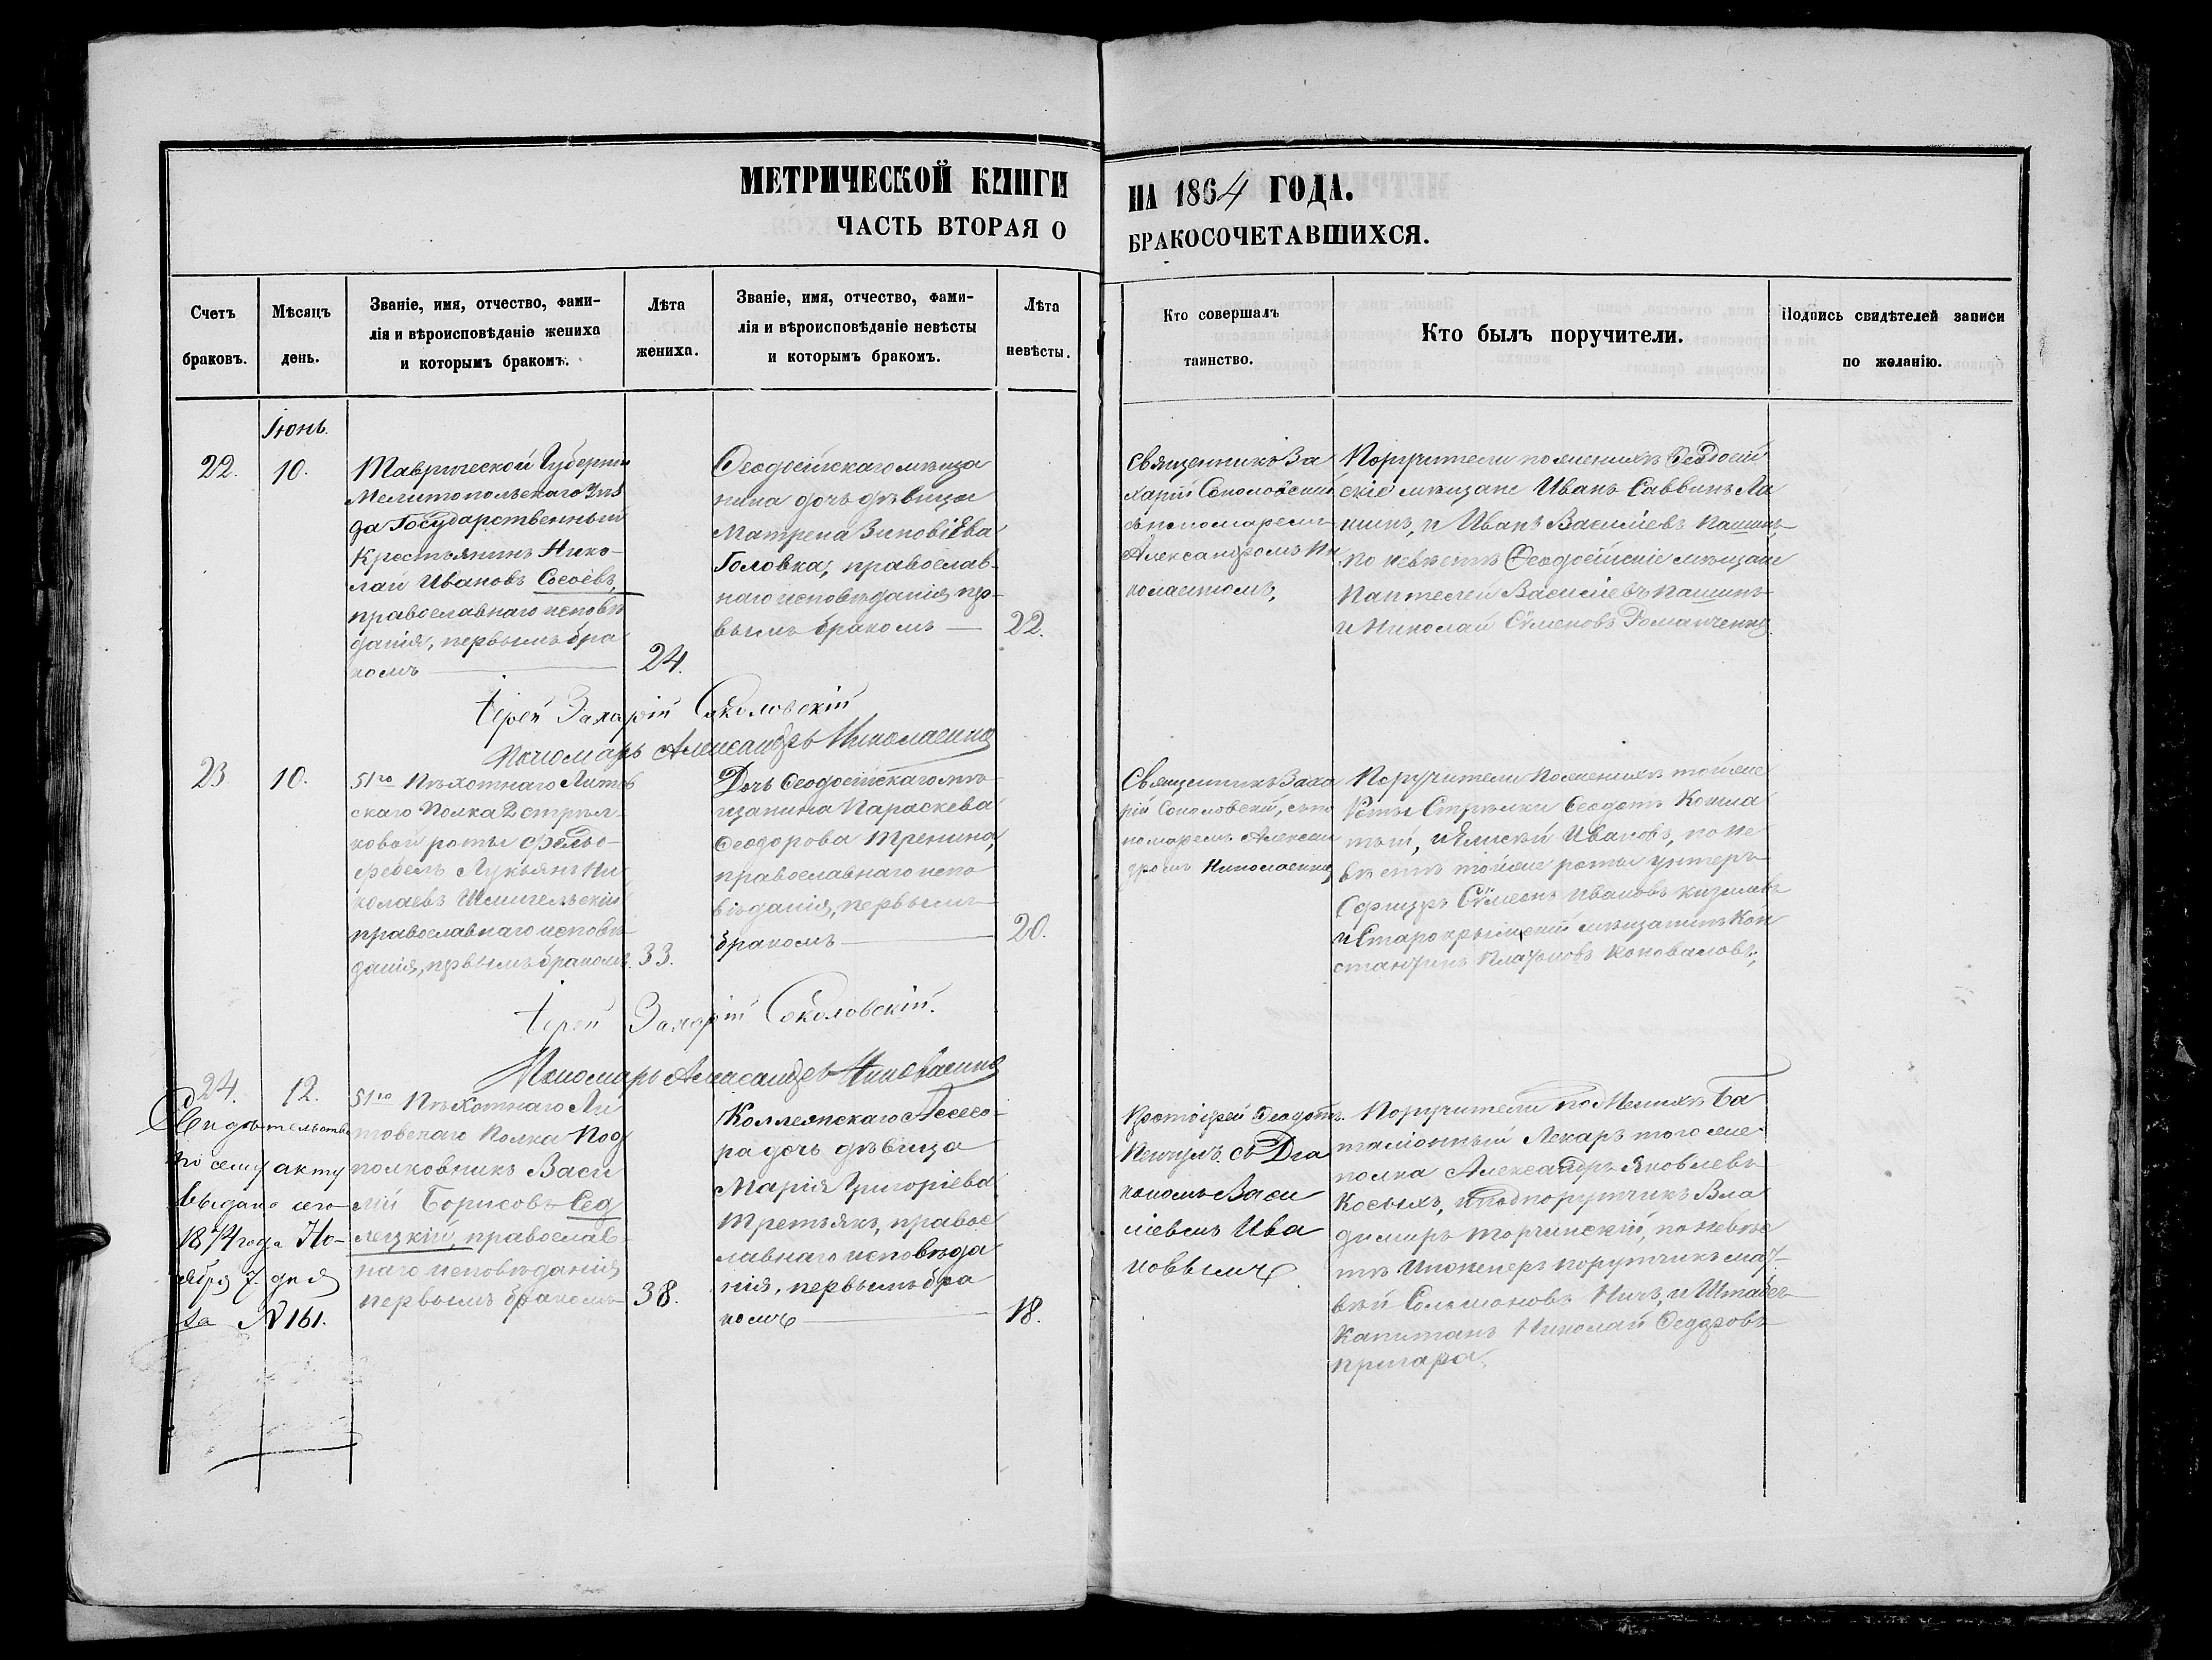 МЕТРИЧЕСКОЙ КНИГИ
НА 1864 ГОДА.
ЧАСТЬ ВТОРАЯ О
БРАКОСОЧЕТАВШИХСЯ.
Счетъ браковъ.
Мѣсяцъ день.
Званіе, имя, отчество, фами-
лія и вѣроисповѣданіе жениха
и которымъ бракомъ.
Лѣта жениха.
Званіе, имя, отчество, фами-
лія и вѣроисповѣданіе невѣсты
и которымъ бракомъ.
Лѣта невѣсты.
Кто совершалъ
таинство.
Кто былъ поручители.
Подпись свидѣтелей записи
по желанію.
Іюнь.
22.
10.
Таврической Губерніи
Мелитопольскаго Уѣз
да Государственный
Крестьянинъ Нико-
лай Ивановъ Сысоевъ,
православнаго исповѣ
данія, первымъ бра
комъ
24.
Ѳеодосійскаго мѣща
нина дочь дѣвица
Матрена Зиновіева
Головка, православ-
наго исповѣданія пер-
вымъ бракомъ
22.
Священникъ За
харій Соколовскій
съ пономаремъ
Александромъ Ни
Поручители по женихѣ Ѳеодосій
скіе мѣщане Иванъ Саввинъ Ла
и Иванъ Василіевъ Пашинъ
по невѣстѣ Ѳеодосійскіе мѣщане
Пантелей Василіевъ Пашинъ
и Николай Сѵменовъ Романченко.
Іерей Захарій Соколовскій
Пономарь Александръ Николаенко
23
10.
51го Пѣхотнаго Литов
скаго Полка 2 стрѣл-
ковой роты фельд-
фебель Лукьянъ Ни
колаевъ Шмигельскій
православнаго исповѣ
данія, первымъ бракомъ.
33.
Дочь Ѳеодосійскаго мѣ-
щанина Параскева
Ѳеодорова Тренина,
православнаго испо
вѣданія, первымъ
бракомъ
20.
Священникъ Заха
рій Соколовскій, съ по
номаремъ Алексан
дромъ Николаенко,
Поручители По женихѣ той же
Роты Стрѣлки Ѳеодотъ Кошла
тый, и Ивановъ, по не
вѣстѣ той же роты унтеръ
Офицеръ Сѵмеонъ Ивановъ
и Старокрымскій мѣщанинъ Кон
стантинъ Платоновъ Коноваловъ;
Іерей Захарій Соколовскій.
Пономарь Александръ Николаенко
24.
12.
Свидѣтельство
по сему акту
выдано сего
1874 года Но-
ября 7. дня
за № 161.
51го Пѣхотнаго Ли
товскаго Полка Под
полковникъ Васи
лій Борисовъ Сед
лецкій, православ-
наго исповѣданія
первымъ бракомъ
38.
Коллежскаго Асесо-
ра дочь дѣвица
Марія Григоріева
Третьякъ, правос
лавнаго исповѣда
нія, первымъ бра
комъ
18.
Протоіерей Ѳеодотъ
съ Діа
кономъ Васи
ліемъ Ива
новымъ
Поручители по Женихѣ Ба
таліонный Лекарь того же
полка Александръ Яковлевъ
Косыхъ, и подпорутчикъ Вла
димиръ Торчинскій, по невѣс
тѣ Инженеръ порутчикъ Мат-
вѣй Соломоновъ Ничъ, и Штабсъ
Капитанъ Николай Ѳедоровъ
Пригара.